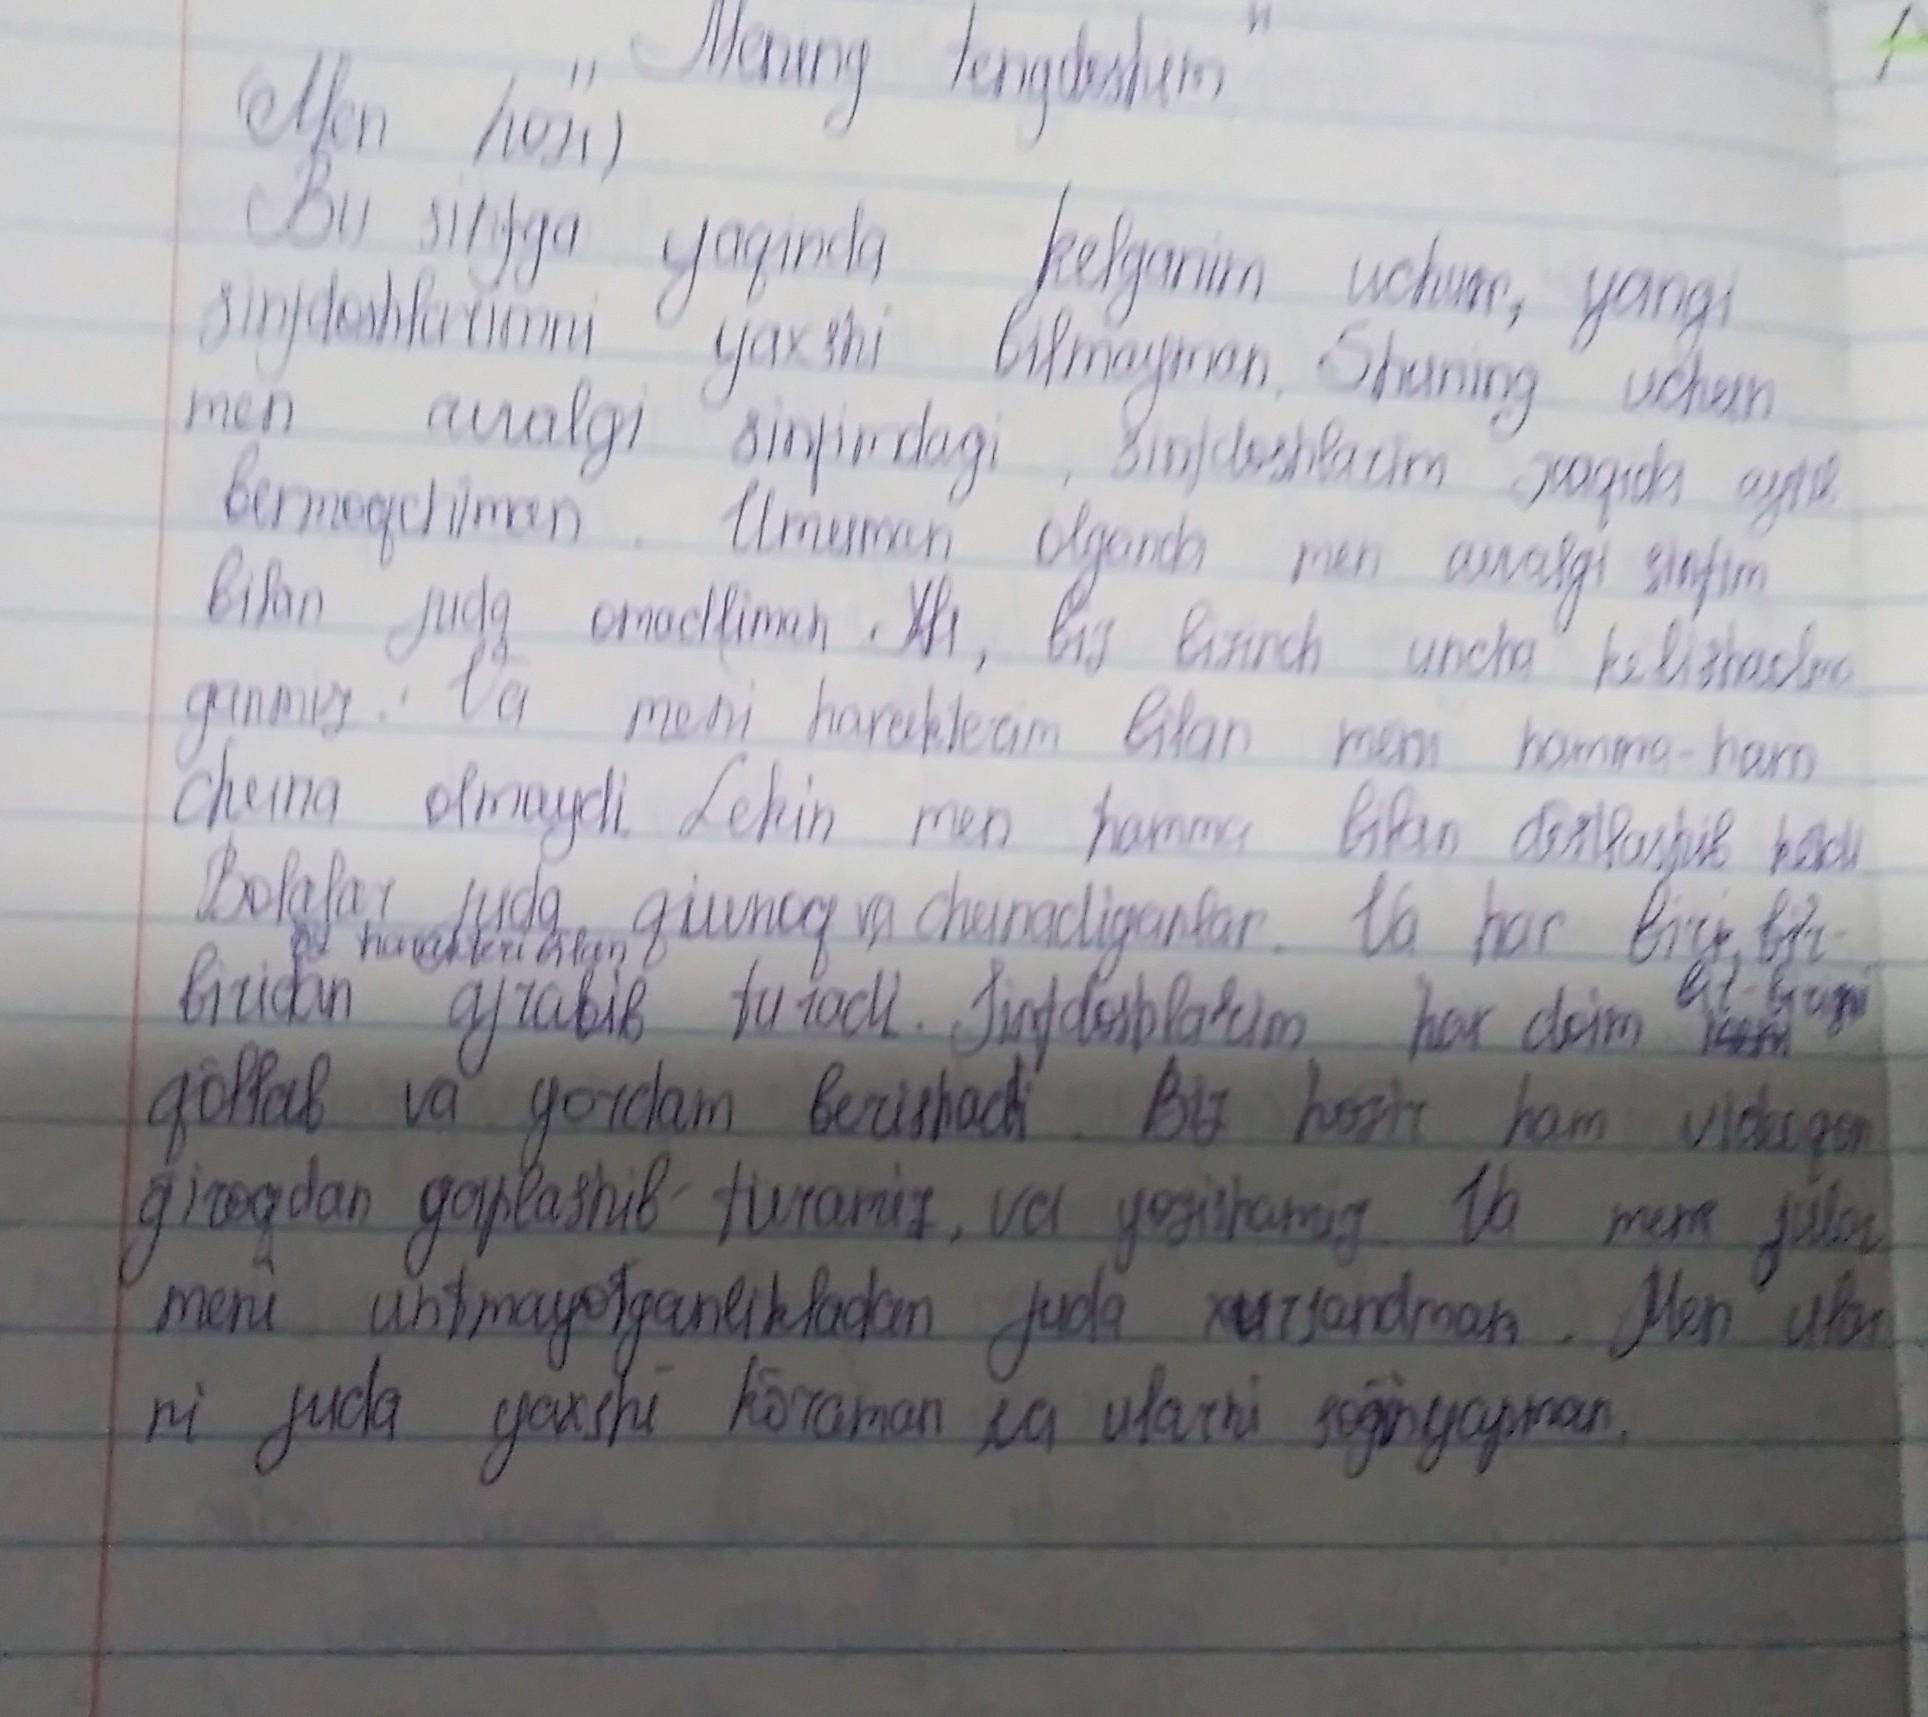 "Mening tengdoshim"
(Men hozi)
Bu sinfga yaqinda kelganim uchun, yangi
sinfdoshlarimni yaxshi bilmayman. Shuning uchun
men avvalgi sinfimdagi, sinfdoshlarim xaqida aytib
bermoqchiman. Umuman olganda men avvalgi sinfim
bilan juda omadliman. biz uncha
ganmiz. Va meni harakterim bilan meni hamma-ham
chuna olmaydi. Lekin men hamma bilan
Bolalar juda quvnoq va chunadiganlar. Va har biri, bir-
oz harakteri bilan
biridan ajrabib turadi. Sinfdoshlarim har doim bir-birini
qõllab va yordam berishadi. Biz hozir ham videoqon
ģiroqdan gaplashib turamiz, va yozishamiz. Va men
meni untmayotganlikladan juda xursandman. Men ular
ni juda yaxshi kõraman va ularni soģinyapman.